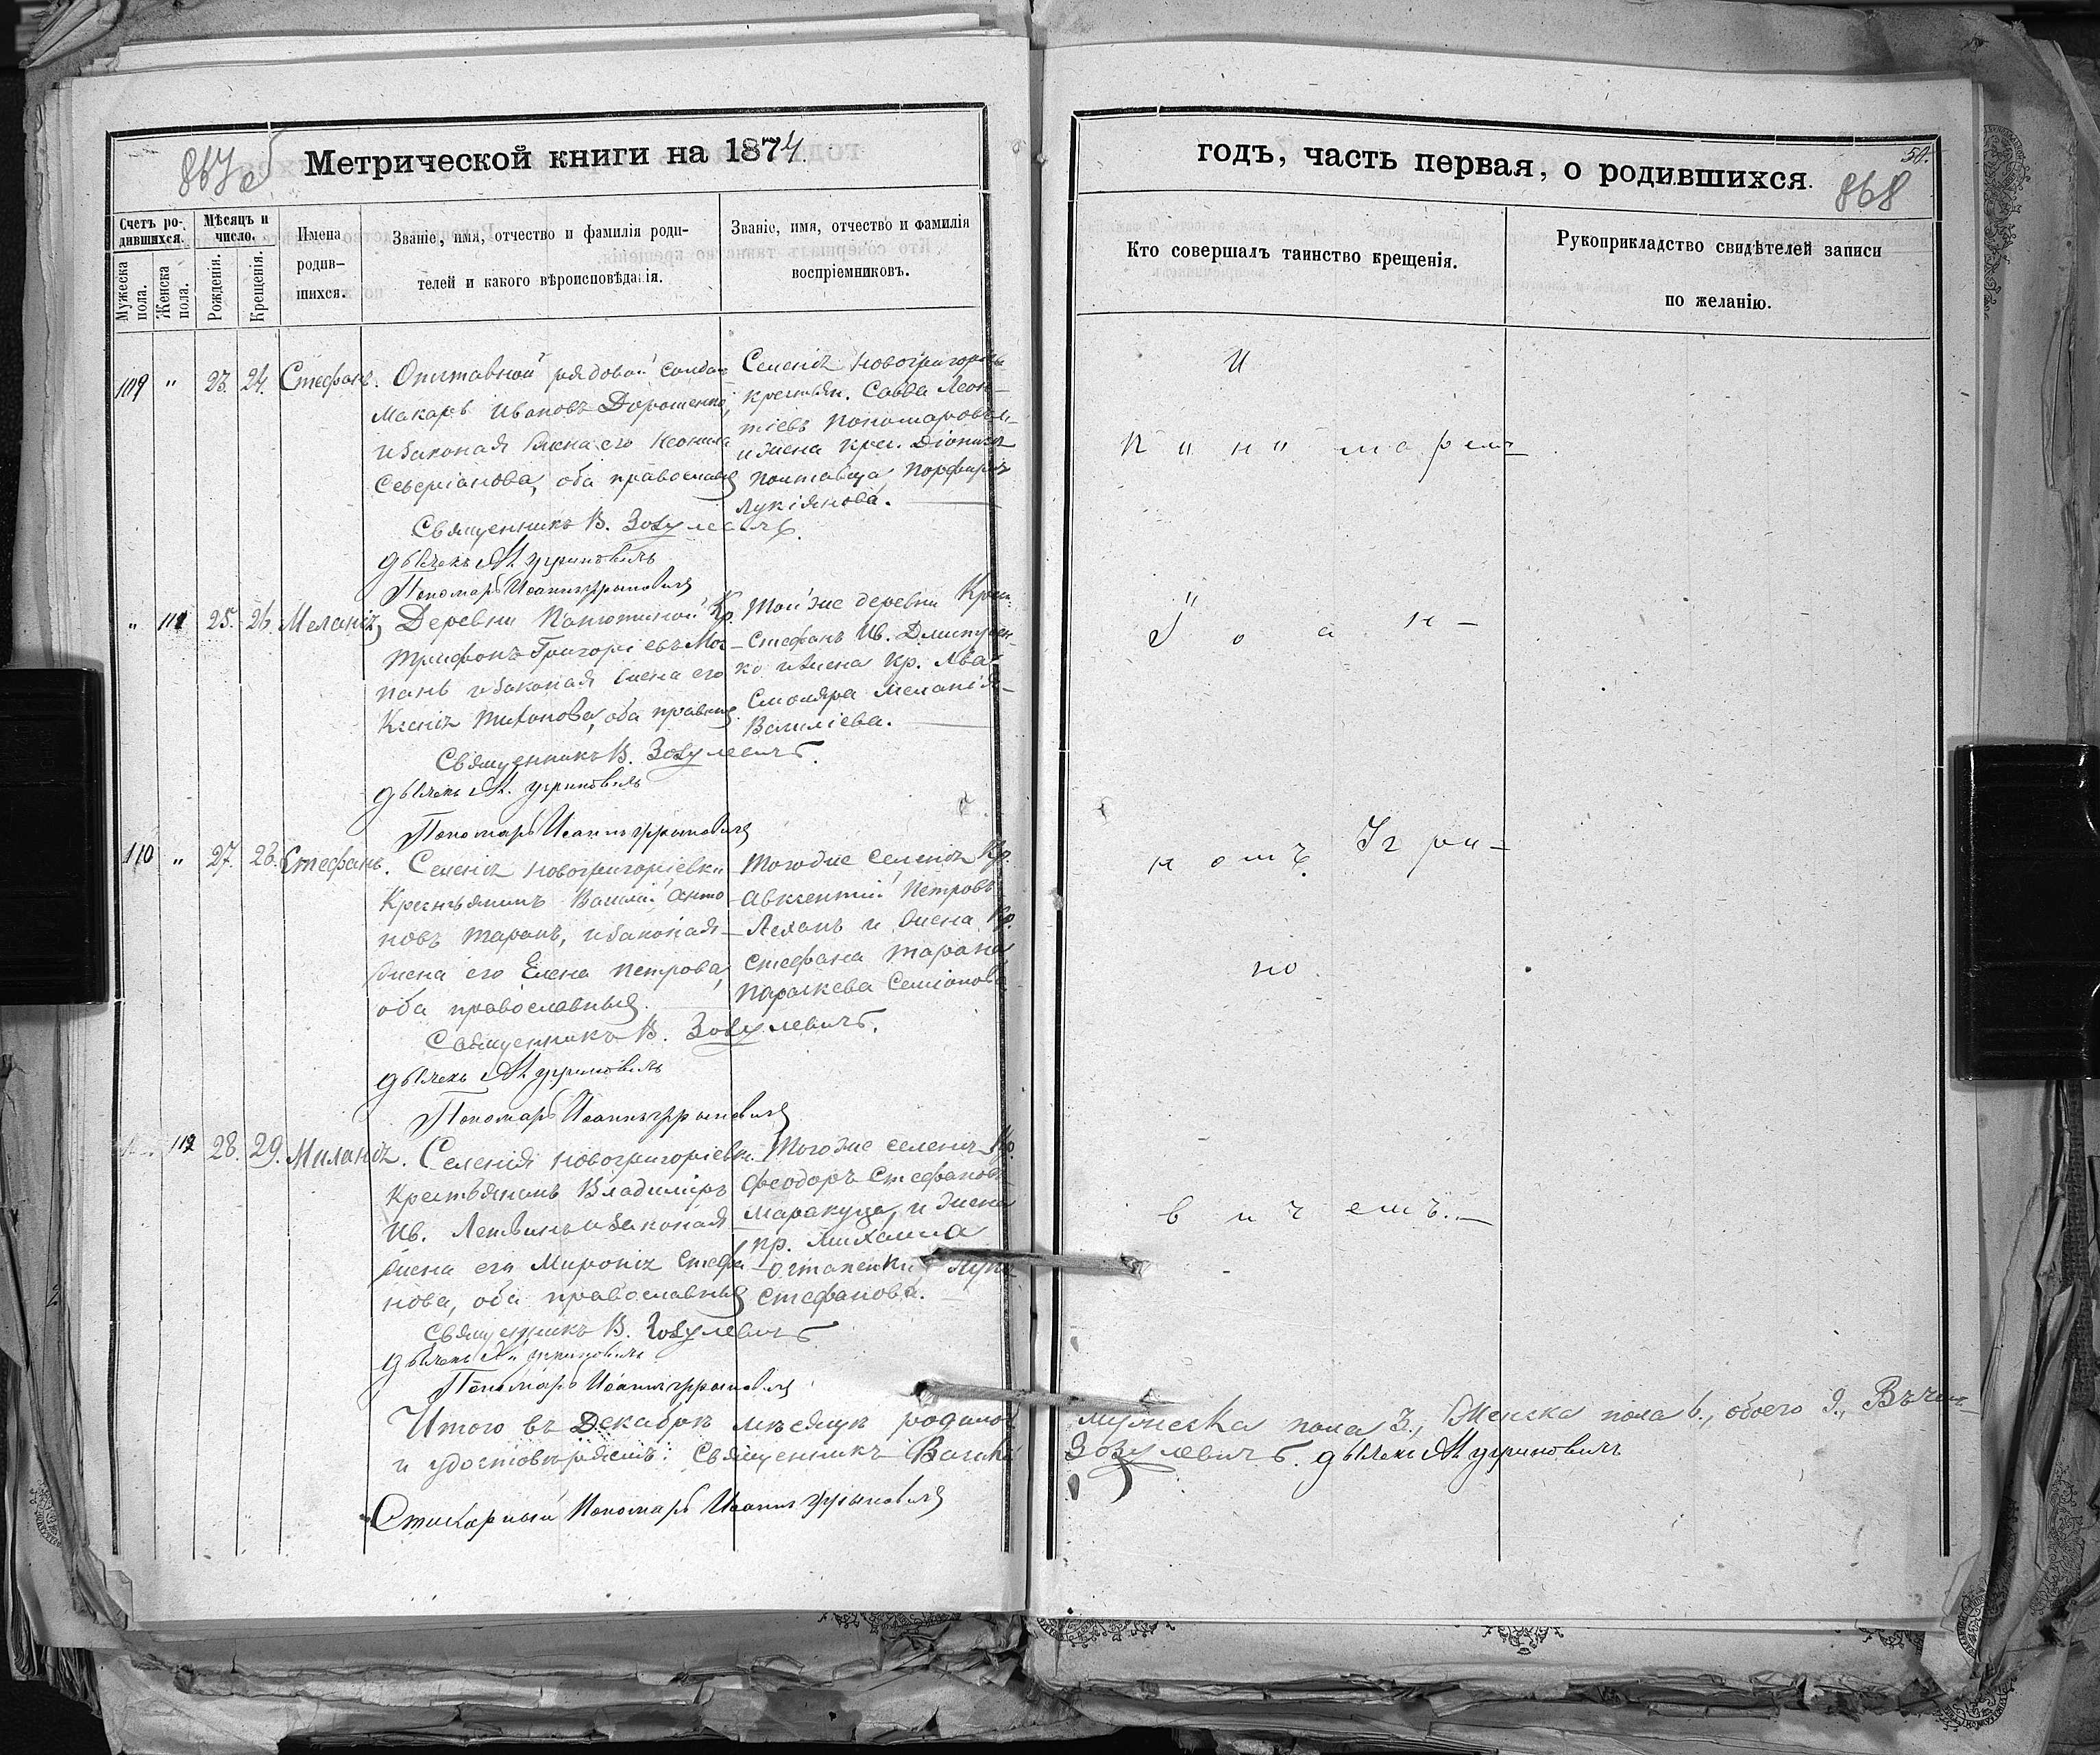 867 об
Метрической книги на 1874.
Счетъ родившихся.
Мужеска пола.
Женска пола.
Мѣсяцъ и число.
Рожденія.
Крещенія.
Имена родившихся.
Званіе, имя, отчество и фамилія родителей и какого вѣроисповѣданія.
Званіе, имя, отчество и фамилія воспріемниковъ.
109 " 23. 24. Стефанъ.
рядовой солдат
Макаръ Ивановъ Дорошенко,
и законая жена его Неонила
Северіанова, оба православны
Священникъ В. Зозулевичъ.
дьячекъ М. угриновичъ
Пономарь Иоаннъ угриновичъ
Селенія Новогригорьев
крестьян. Савва Леон-
тіевъ Пономаровъ
и жена крес. Діонисія
Полтавца, Порфирія
Лукіянова.
" 111 25. 26. Меланія,
Деревни Панютиной Кр.
Трифонъ Григоріевъ
и законая жена его
Ксенія Тихонова, оба правосл.
Священникъ В. Зозулевичъ.
дьячекъ М. угриновичъ
Пономарь Иоаннъ угриновичъ
Той же деревни Крес.
Стефанъ Ив. Дмитрен-
ко и жена кр. Льва
Смоляра Меланія
Василіева.
110 " 27. 28. Стефанъ.
Селенія Новогригоріевки
Крестьянинъ Василій Анто-
новъ Таранъ, и законая
жена его Елена Петрова,
оба православныя.
Священникъ В. Зозулевичъ.
дьячекъ М. угриновичъ
Пономарь Иоаннъ угриновичъ
Тогоже селенія Кр.
Авксентій Петровъ
Леханъ и жена Кр.
Стефана Тарана
Параскева Семіонова
112 28. 29. Миланія.
Селенія Новогригоріевки
Крестьянинъ Владиміръ
Ив. Летвинъ и законая
жена его Миронія Стефа-
нова, оба православныя
Священникъ В. Зозулевичъ
дьячекъ М. угриновичъ
Пономарь Иоаннъ угриновичъ
Тогоже селенія Кр.
Феодоръ Стефановъ
Маракуца, и жена
кр. Михаила
Остапенки
Стефанова.
Итого въ Декабрѣ мѣсяцѣ родилос
и удостовѣряемъ: Священникъ Васил
Стихарный Пономарь Иоаннъ угриновичъ
годъ, часть первая, о родившихся.
50.
868
Кто совершалъ таинство крещенія.
Рукоприкладство свидѣтелей записи по желанію.
И
по
вичемъ.
мужеска пола 3., Женска пола 6., обоего 9.,
Зозулевичъ. дьячекъ М угриновичъ